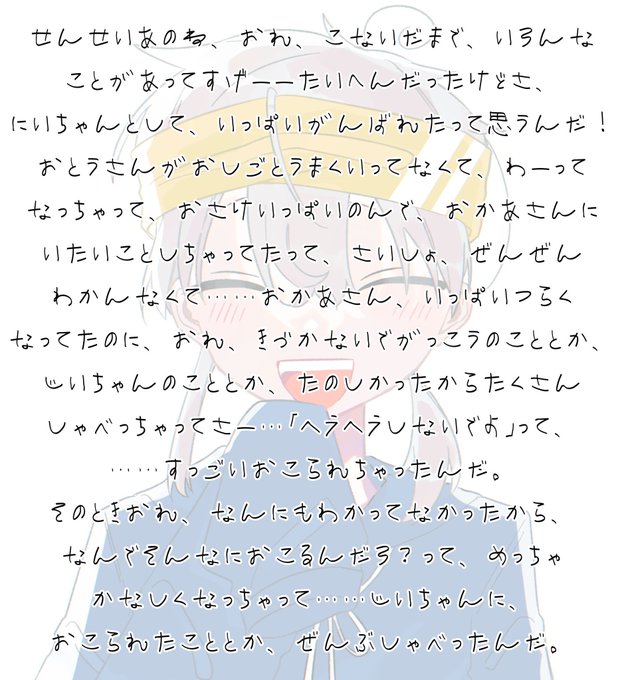 せんせいあのね、おれ、こないだまで、いろんな
ことがあってすげーーたいへんだったけどさ、
にいちゃんとして、いっぱいがんばれたって思うんだ!
おとうさんがおしごとうまくいってなくて、わーって
なっちゃって、おさけいっぱいのんで、おかあさんに
いたいことしちゃってたって、さいしょ、ぜんぜん
わかんなくて……おかあさん、いっぱいつらく
なってたのに、おれ、きづかないでがっこうのこととか、
じいちゃんのこととか、たのしかったからたくさん
しゃべっちゃってさー…「ヘラヘラしないでよ」って、
……すっごいおこられちゃったんだ。
そのときおれ、なんにもわかってなかったから、
なんでそんなにおこるんだろ?って、めっちゃ
かなしくなっちゃって……じいちゃんに、
おこられたこととか、ぜんぶしゃべったんだ。